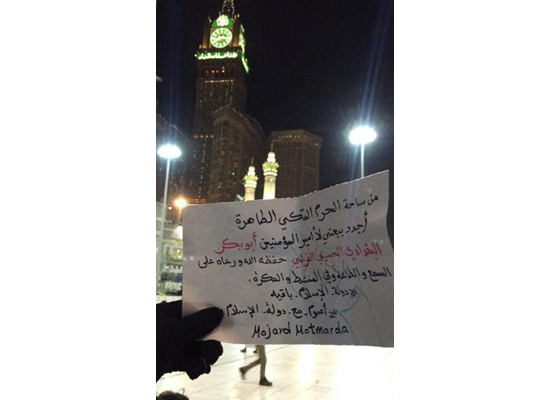 من ساحة الحرم المكي الطاهرة
أجدد بيعتي لأمير المؤمنين أبو بكر
البغدادي الحسيني القرشي حفظه الله ورعاه على
السمع والطاعة وفي المنشط والمكره.
#دولة_الإسلام_باقية
#أصوم_مع_دولة_الإسلام
Mojard Motmarda